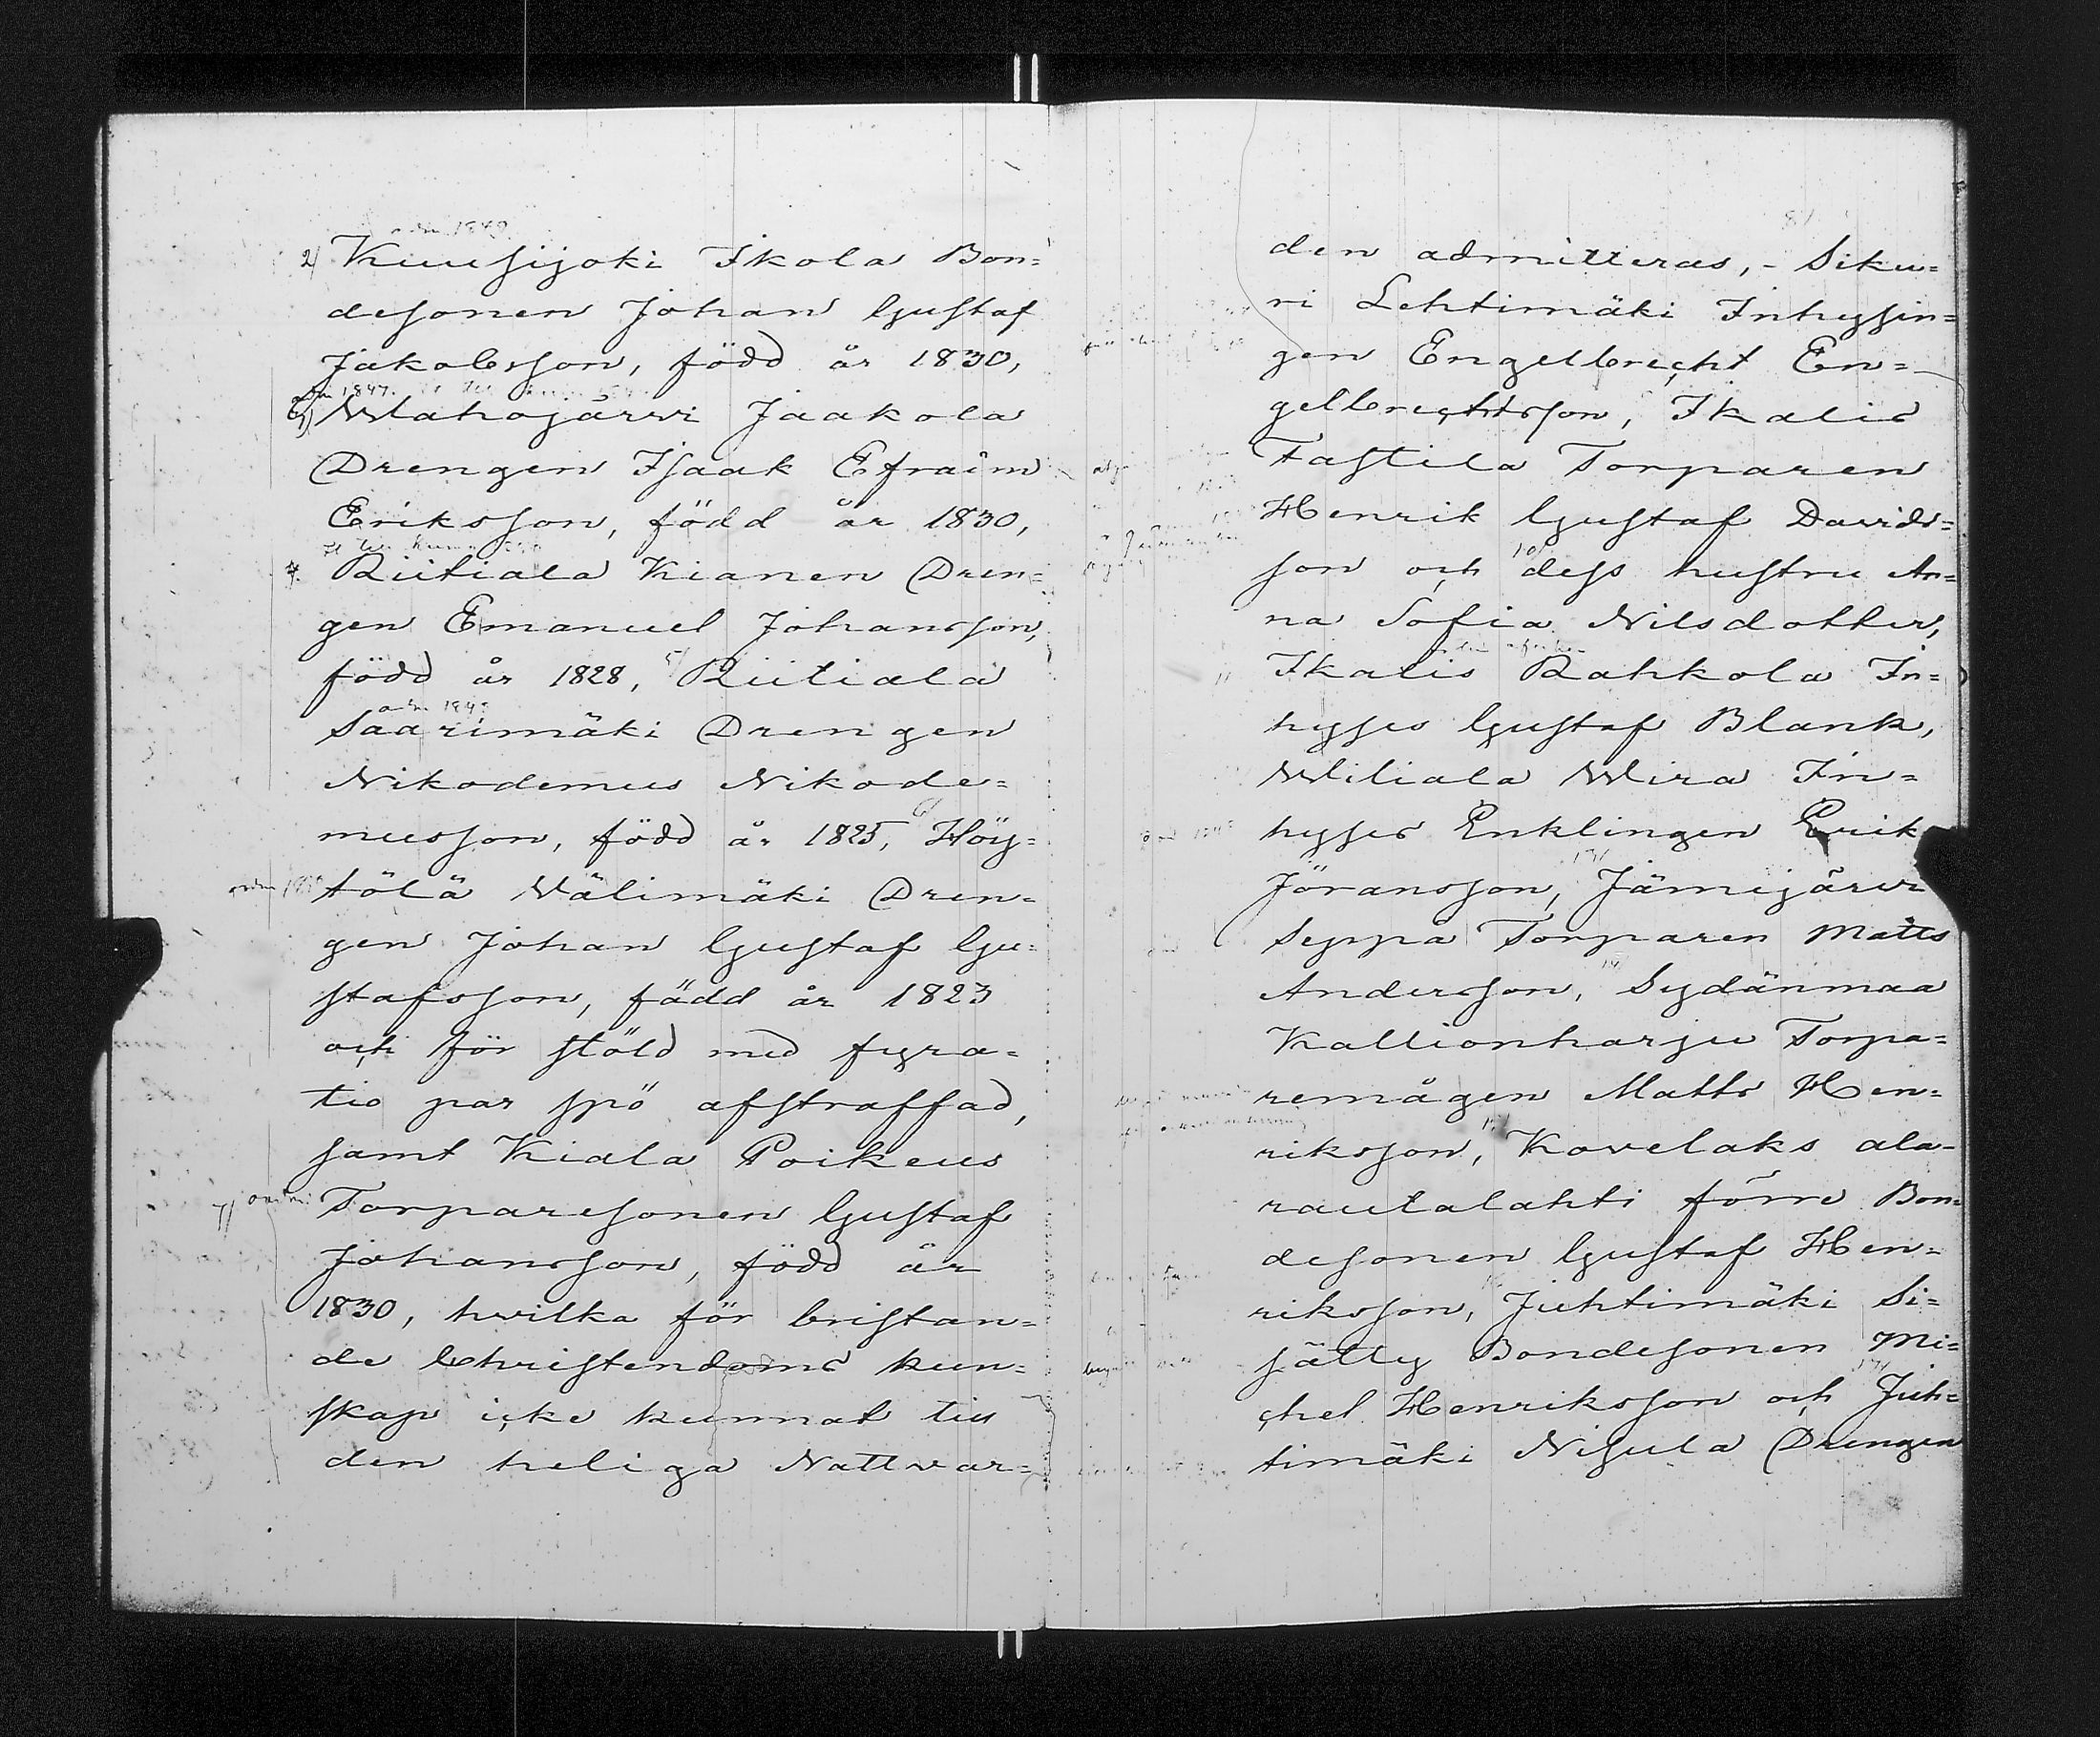 adm 1849
2) Kuusijoki Ikola Bon=
desonen Johan Gustaf
Jakobsson, född år 1830,
adm 1847.
3) Wlahojärwi Jaakola
Drengen Isaak Efraim
Eriksson, född år 1830,
4. Riitiala Kianen Dren=
gen Emanuel Johansson,
född år 1828, 5) Riitiala
adm 1849
Saarimäki Drengen
Nikodemus Nikode=
musson, född år 1825, 6) Höy=
tölä Välimäki Dren=
gen Johan Gustaf Gu=
stafsson, född år 1823
och för stöld med fyra=
tio par spö afstraffad,
samt Kiala Poikeus
7) Torparesonen Gustaf
Johansson, född år
1830, hvilka för bristan=
de Christendoms kun=
skap icke kunnat till
den heliga Nattvar=
den admitteras, - Siku=
ri Lehtimäki Inhysin=
gen Engelbrecht En=
gelbrechtsson, Ikalis
Fastila Torparen
Henrik Gustaf Davids=
son och 10) dess hustru An=
na Sofia Nilsdotter,
Ikalis Rahkola In=
hyses Gustaf Blank,
Wiliala Wira In=
hyses Enklingen Erik
Jöransson, 13) Jämijärvi
Seppä Torparen Matts
Andersson, Sydänmaa
Kallionharju Torpa=
remågen Matts Hen=
riksson, Kovelaks ala=
rautalahti förre Bon=
desonen Gustaf Hen=
riksson, Juhtimäki Si=
sätty Bondesonen Mi=
chel Henriksson och Juh=
timäki Nisula Drengen